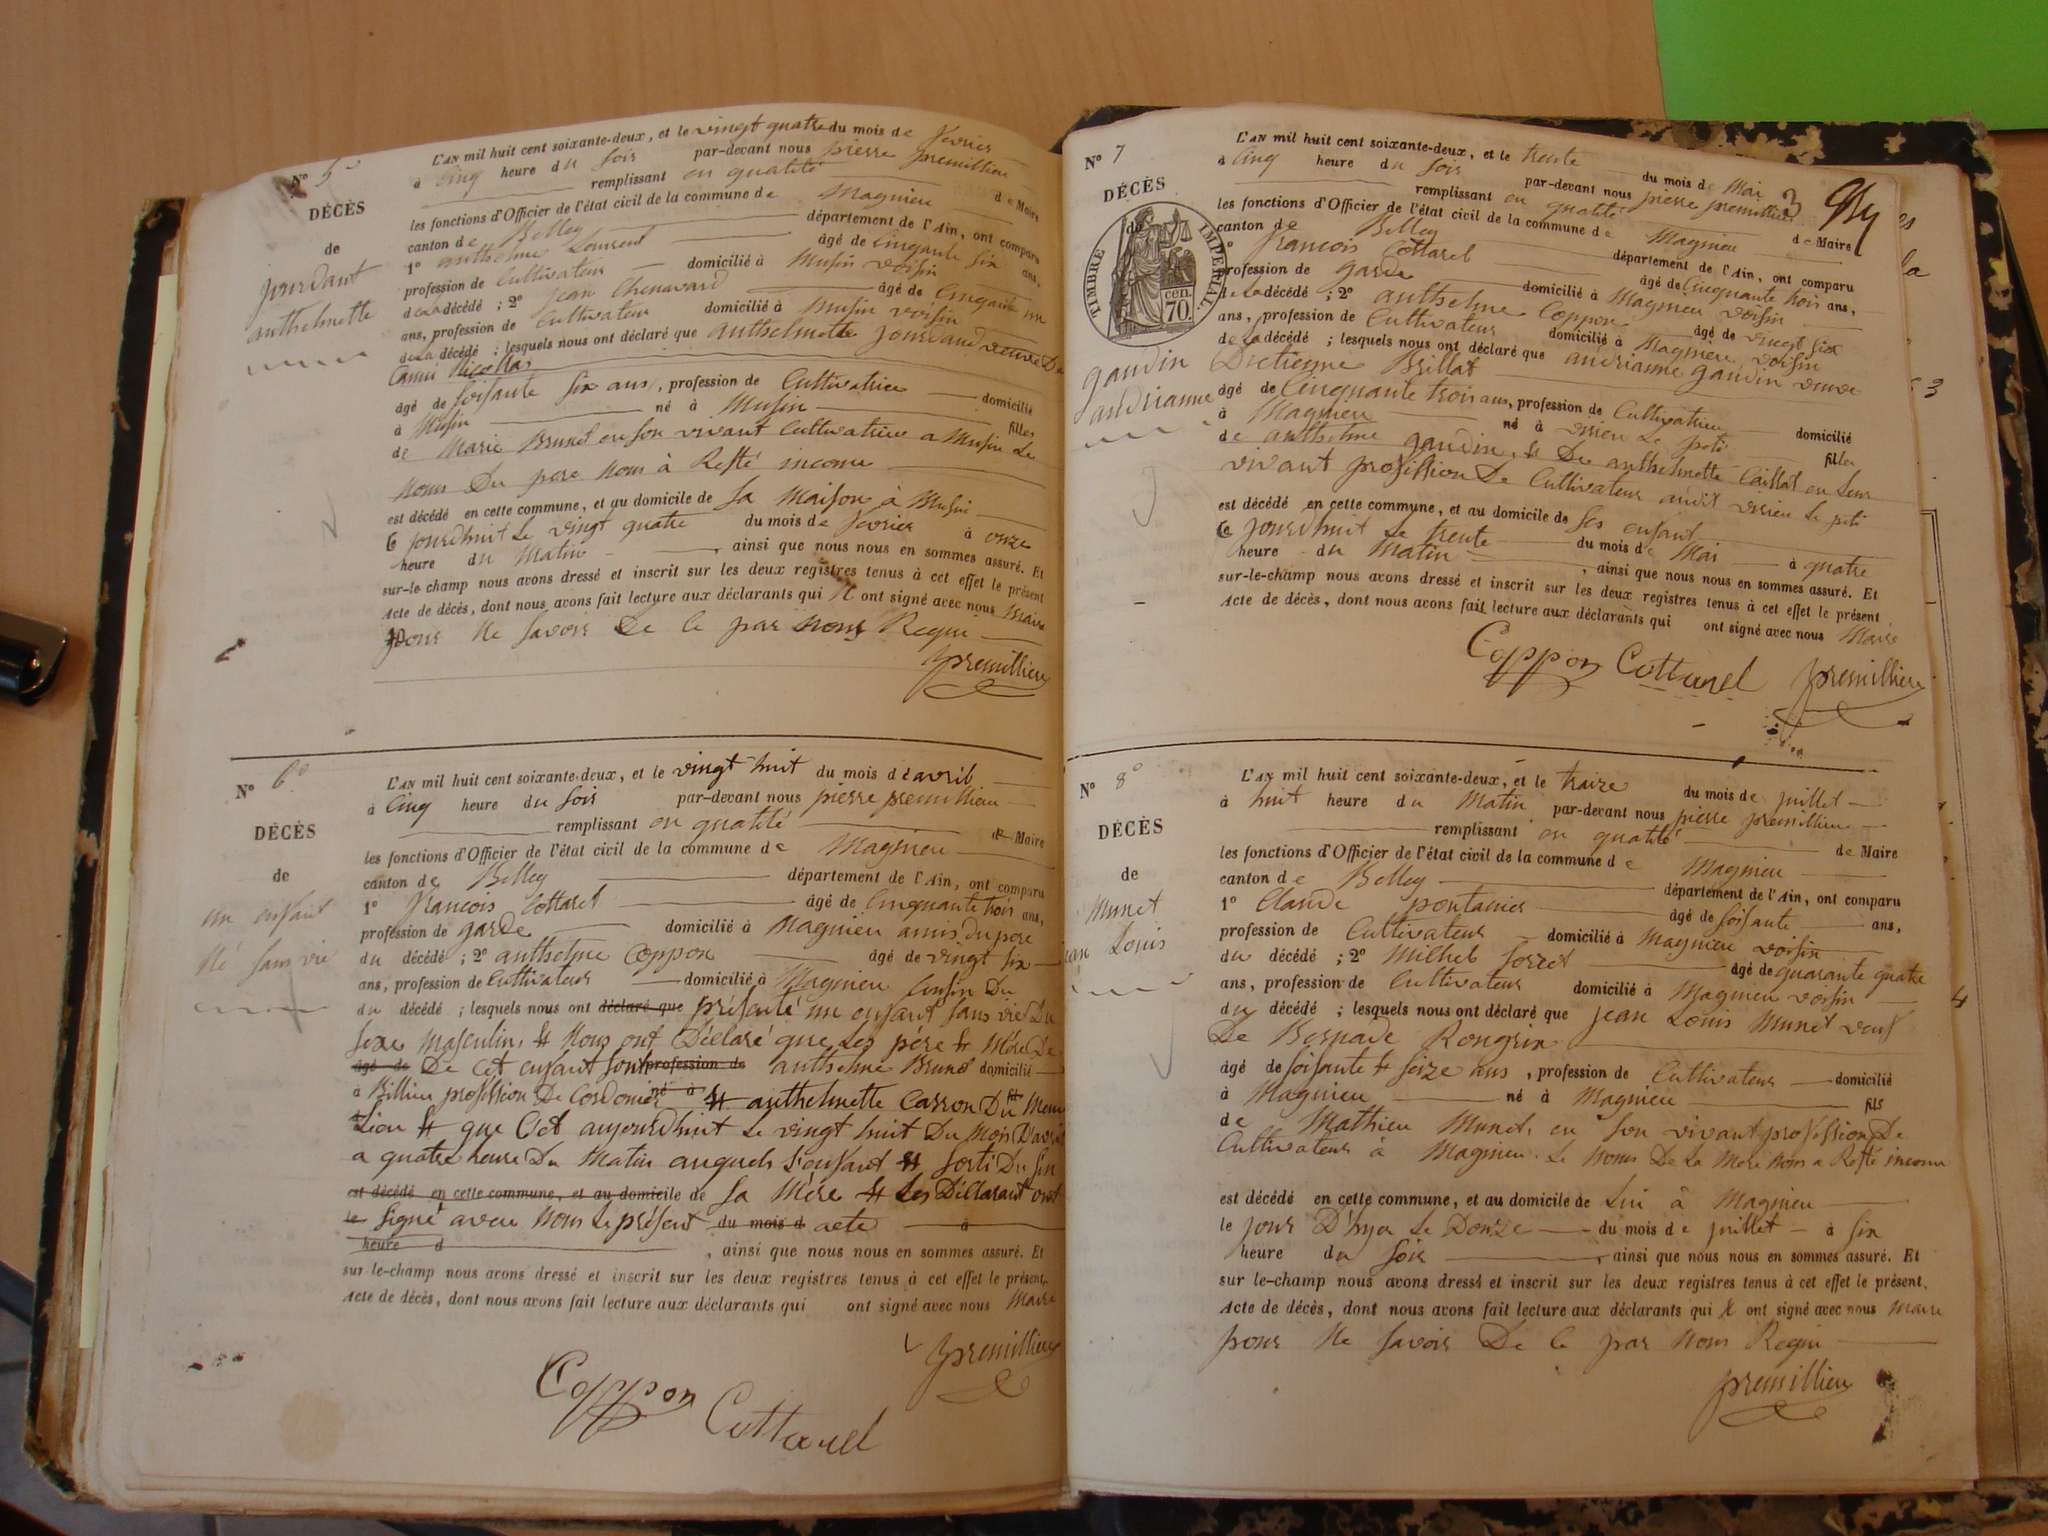 N° 5°
DÉCÈS
de
jourdant
anthelmette
L'AN mil huit cent soixante-deux, et le vingt quatre du mois de fevrier
à cinq heure du soir par-devant nous pierre premillieu
remplissant en qualité de Maire
les fonctions d'Officier de l'état civil de la commune de Magnieu
canton de Belley département de l'Ain, ont comparu
1° anthelme Laurent âgé de cinqante six ans,
profession de Cultivateur domicilié à Musin voisin
de la décédé ; 2° jean Chenavard âgé de Cinqante un
ans, profession de Cultivateur domicilié à Musin voisin
de la décédé ; lesquels nous ont déclaré que anthelmette jourdand veuve De
Camu Nicollas
âgé de soisante six ans, profession de Cultivatrice domicilié
à Musin né à Musin filles
de Marie Brunet en son vivant Cultivatrice a Musin Le
nom Du pere nous à Resté inconu
est décédé en cette commune, et au domicile de sa Maison à Musin
Ce jourdhuit Le vingt quatre du mois de fevrier à onze
heure du Matin , ainsi que nous nous en sommes assuré. Et
sur-le champ nous avons dressé et inscrit sur les deux registres tenus à cet effet le présent
Acte de décès, dont nous avons fait lecture aux déclarants qui N ont signé avec nous Maire
pour Ne savoir De Ce par nous Requi
premillieu
N° 6°
DÉCÈS
de
un enfant
Né sans vie
L'AN mil huit cent soixante-deux, et le vingt huit du mois d'avril
à Cinq heure du soir par-devant nous pierre premillieu
remplissant en qualité de Maire
les fonctions d'Officier de l'état civil de la commune de Magnieu
canton de Belley département de l'Ain, ont comparu
1° françois Cottarel âgé de Cinquante trois ans,
profession de garde domicilié à Magnieu amis du pere
du décédé ; 2° anthelme Coppon âgé de vingt six
ans, profession de Cultivateur domicilié à Magnieu Cousin Du
du décédé ; lesquels nous ont déclaré que présenté un enfant sans vie Du
sexe Masculin, et Nous ont Déclaré que Les père et Mère De
âgé de De Cet enfant sont profession de anthelme Brunet domicilié
à Billieu profession De Cordonier né à et anthelmette Carron Du fil Meme
Lieu et que Cet aujourdhuit Le vingt huit Du Mois D'avril
a quatre heure Du Matin auquels L'enfant et sorti Du sin
est décédé en cette commune, et au domicile de sa Mère et Les Déclarant ont
le signé avec Nous Le présent du mois d acte à
heure d , ainsi que nous nous en sommes assuré. Et
sur le-champ nous avons dressé et inscrit sur les deux registres tenus à cet effet le présent,
Acte de décès, dont nous avons fait lecture aux déclarants qui ont signé avec nous Maire
premillieu
Coppon
Cottarel
N° 7
DÉCÈS
de
TIMBRE IMPÉRIAL
70 cen.
gaudin
andrianne
3
L'AN mil huit cent soixante-deux, et le trente du mois de Mai
à Cinq heure du soir par-devant nous pierre premillieu
remplissant en qualité de Maire
les fonctions d'Officier de l'état civil de la commune de Magnieu
canton de Belley département de l'Ain, ont comparu
1° françois Cottarel âgé de Cinquante trois ans,
profession de garde domicilié à Magnieu voisin
de la décédé ; 2° anthelme Coppon âgé de vingt six
ans, profession de Cultivateur domicilié à Magnieu voisin
de la décédé ; lesquels nous ont déclaré que andrianne gaudin veuve
Brillat
âgé de Cinquante trois ans, profession de Cultivatrice domicilié
à Magnieu né à virieu Le peti filles
de anthelme gaudin, et De anthelmette Caillat en Leur
vivant profession De Cultivateur audit virieu Le peti
est décédé en cette commune, et au domicile de ses enfant
Ce jourdhuit Le trente du mois de Mai à quatre
heure du Matin , ainsi que nous nous en sommes assuré. Et
sur-le-champ nous avons dressé et inscrit sur les deux registres tenus à cet effet le présent
Acte de décès, dont nous avons fait lecture aux déclarants qui ont signé avec nous Maire
Coppon Cottarel premillieu
N° 8°
DÉCÈS
de
Munet
jean Louis
L'AN mil huit cent soixante-deux, et le traize du mois de juillet
à huit heure du Matin par-devant nous pierre premillieu
remplissant en qualité de Maire
les fonctions d'Officier de l'état civil de la commune de Magnieu
canton de Belley département de l'Ain, ont comparu
1° Claude pontanier âgé de soisante ans,
profession de Cultivateur domicilié à Magnieu voisin
du décédé ; 2° Milhet âgé de quarante quatre
ans, profession de Cultivateur domicilié à Magnieu voisin
du décédé ; lesquels nous ont déclaré que jean Louis Munet veuf
De
âgé de soisante et seize ans , profession de Cultivateur domicilié
à Magnieu né à Magnieu fils
de Mathieu Munet, en son vivant profession De
Cultivateur à Magnieu Le nom De La Mere Nous a Resté inconu
est décédé en cette commune, et au domicile de Lui à Magnieu
le jour D'hyer Le Douze du mois de juillet à six
heure du soir , ainsi que nous nous en sommes assuré. Et
sur le-champ nous avons dressé et inscrit sur les deux registres tenus à cet effet le présent.
Acte de décès, dont nous avons fait lecture aux déclarants qui N ont signé avec nous Maire
pour Ne savoir De Ce par nous Requi
premillieu